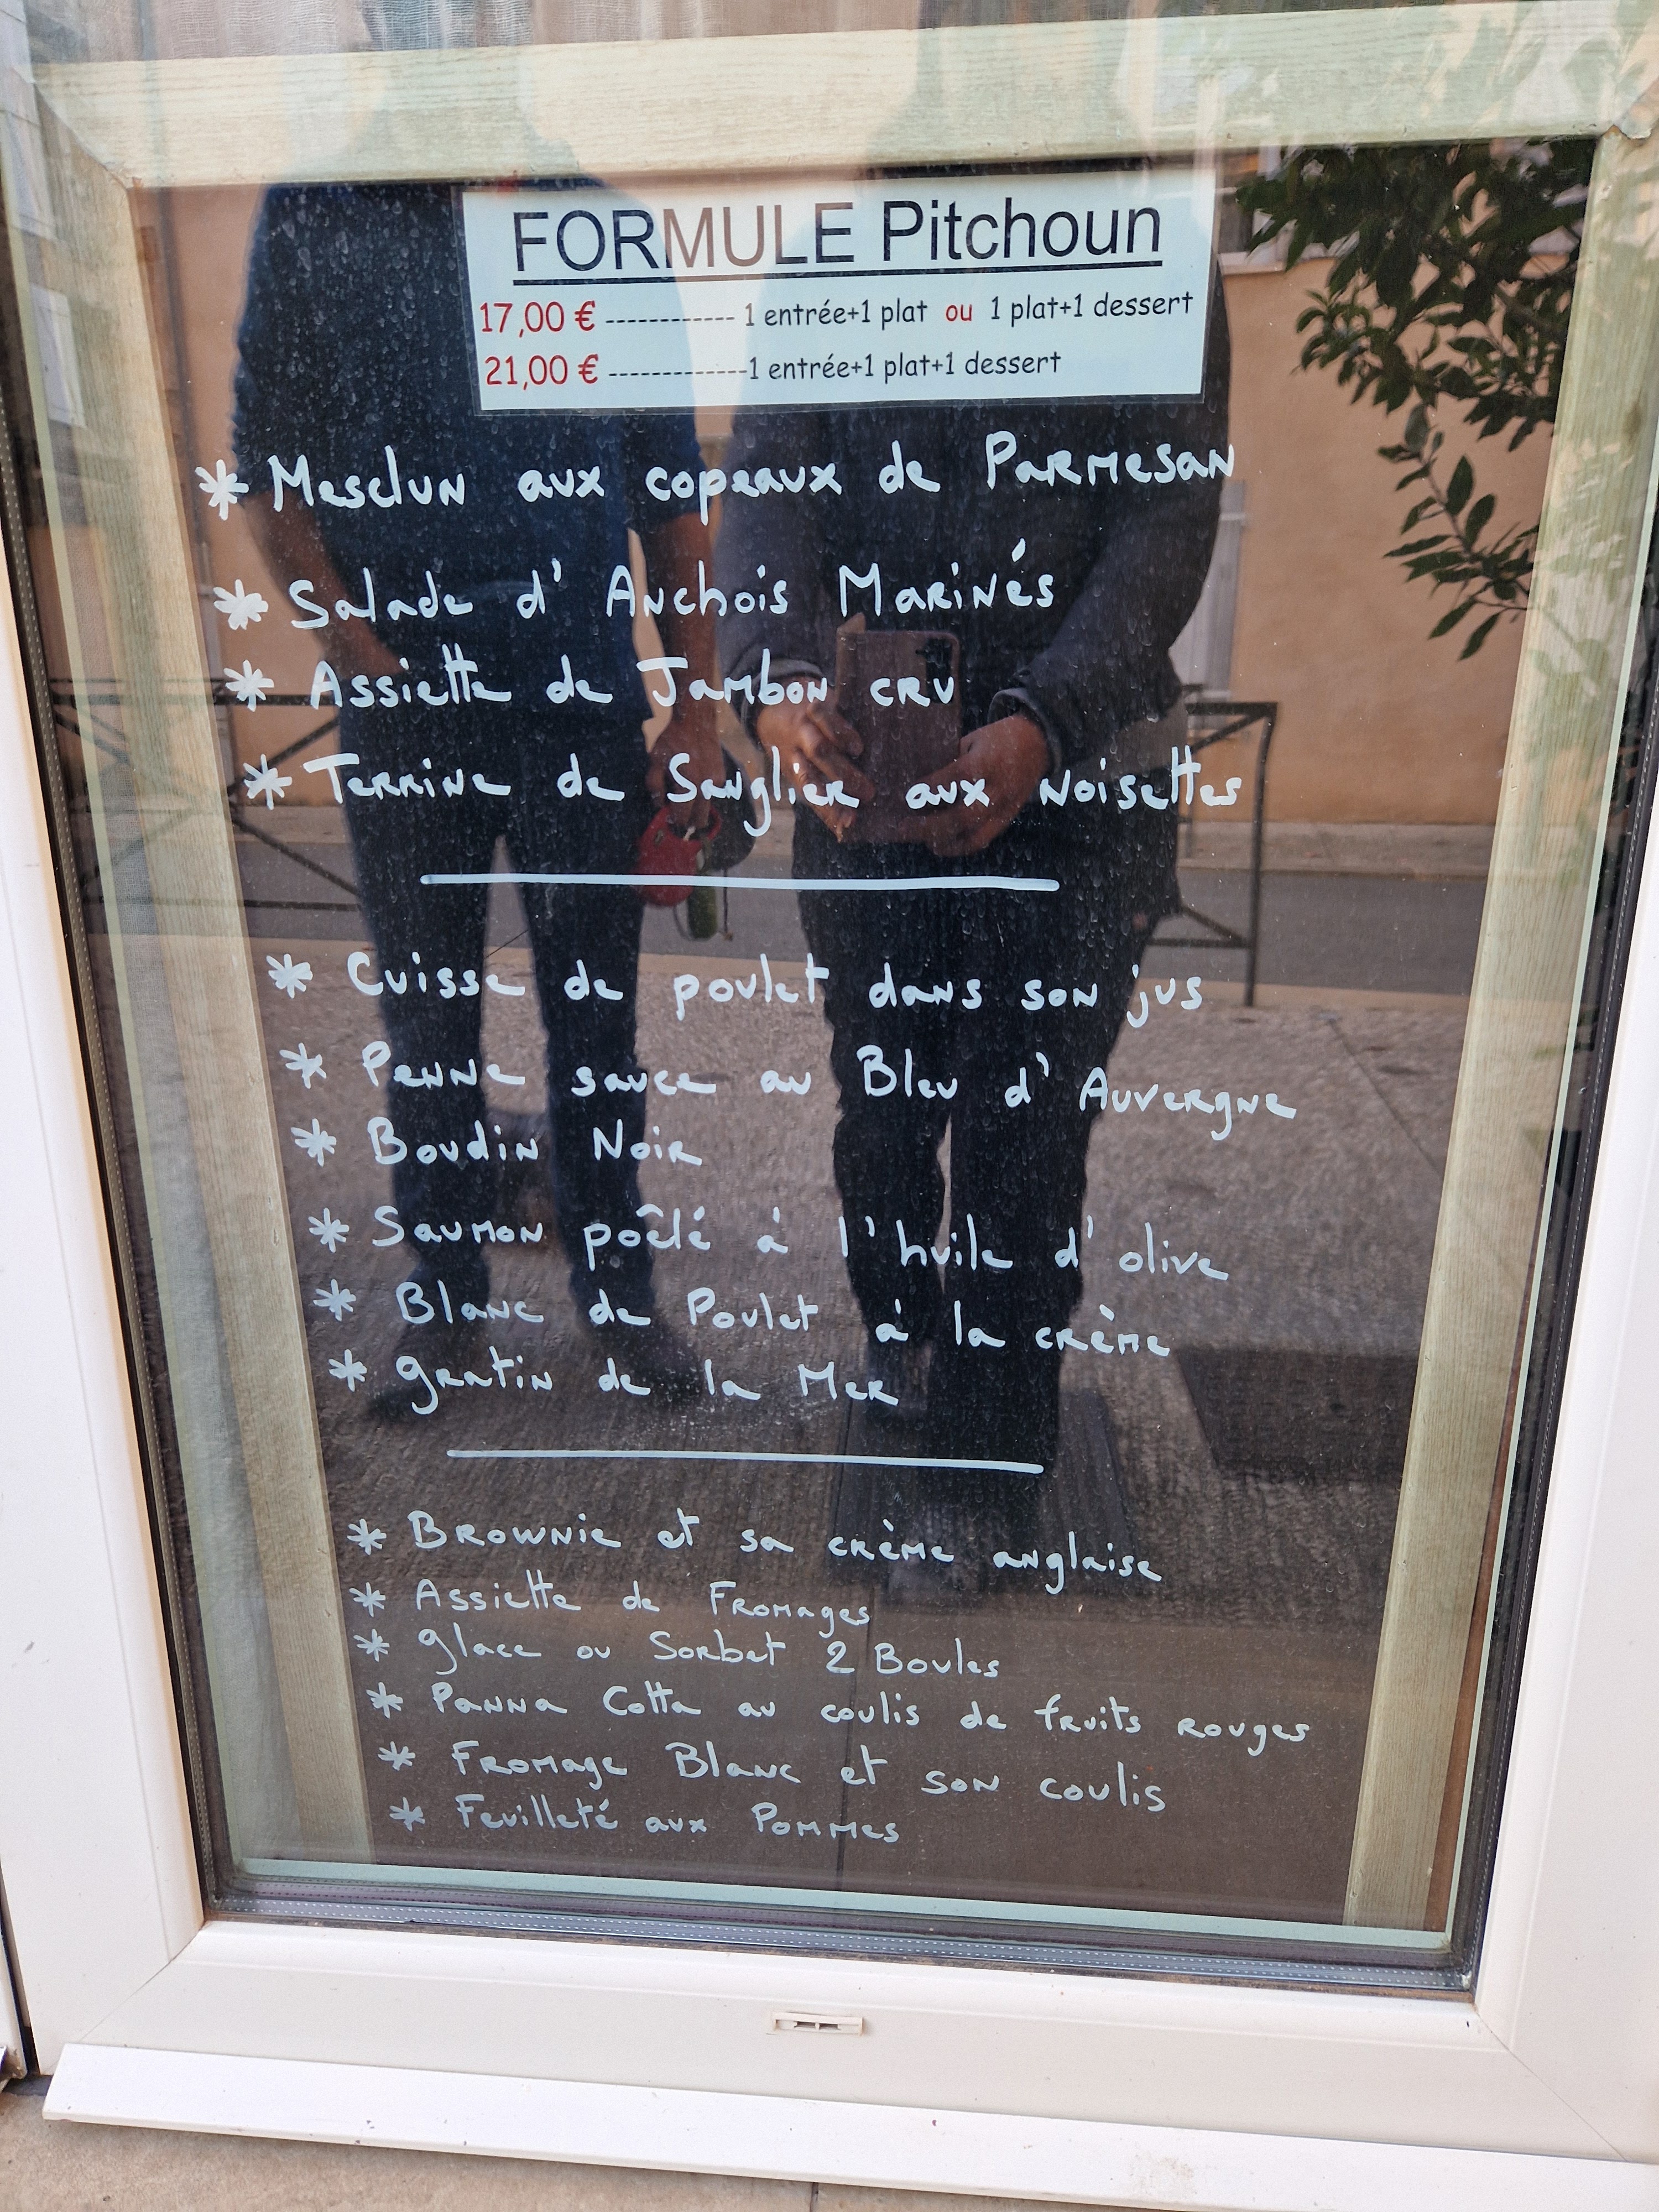 FORMULE Pitchoun
17,00 € ------------ 1 entrée+1 plat ou 1 plat+1 dessert
21,00 € -------------1 entrée+1 plat+1 dessert
* Mesclun aux copeaux de Parmesan
* Salade d'Anchois Marinés
* Assiette de Jambon cru
* Terrine de Sanglier aux Noisettes
* Cuisse de poulet dans son jus
* Penne sauce au Bleu d'Auvergne
* Boudin Noir
* Saumon poêlé à l'huile d'olive
* Blanc de Poulet à la crème
* gratin de la Mer
* Brownie et sa crème anglaise
* Assiette de Fromages
* glace ou Sorbet 2 Boules
* Panna Cotta au coulis de fruits rouges
* Fromage Blanc et son coulis
* Feuilleté aux Pommes